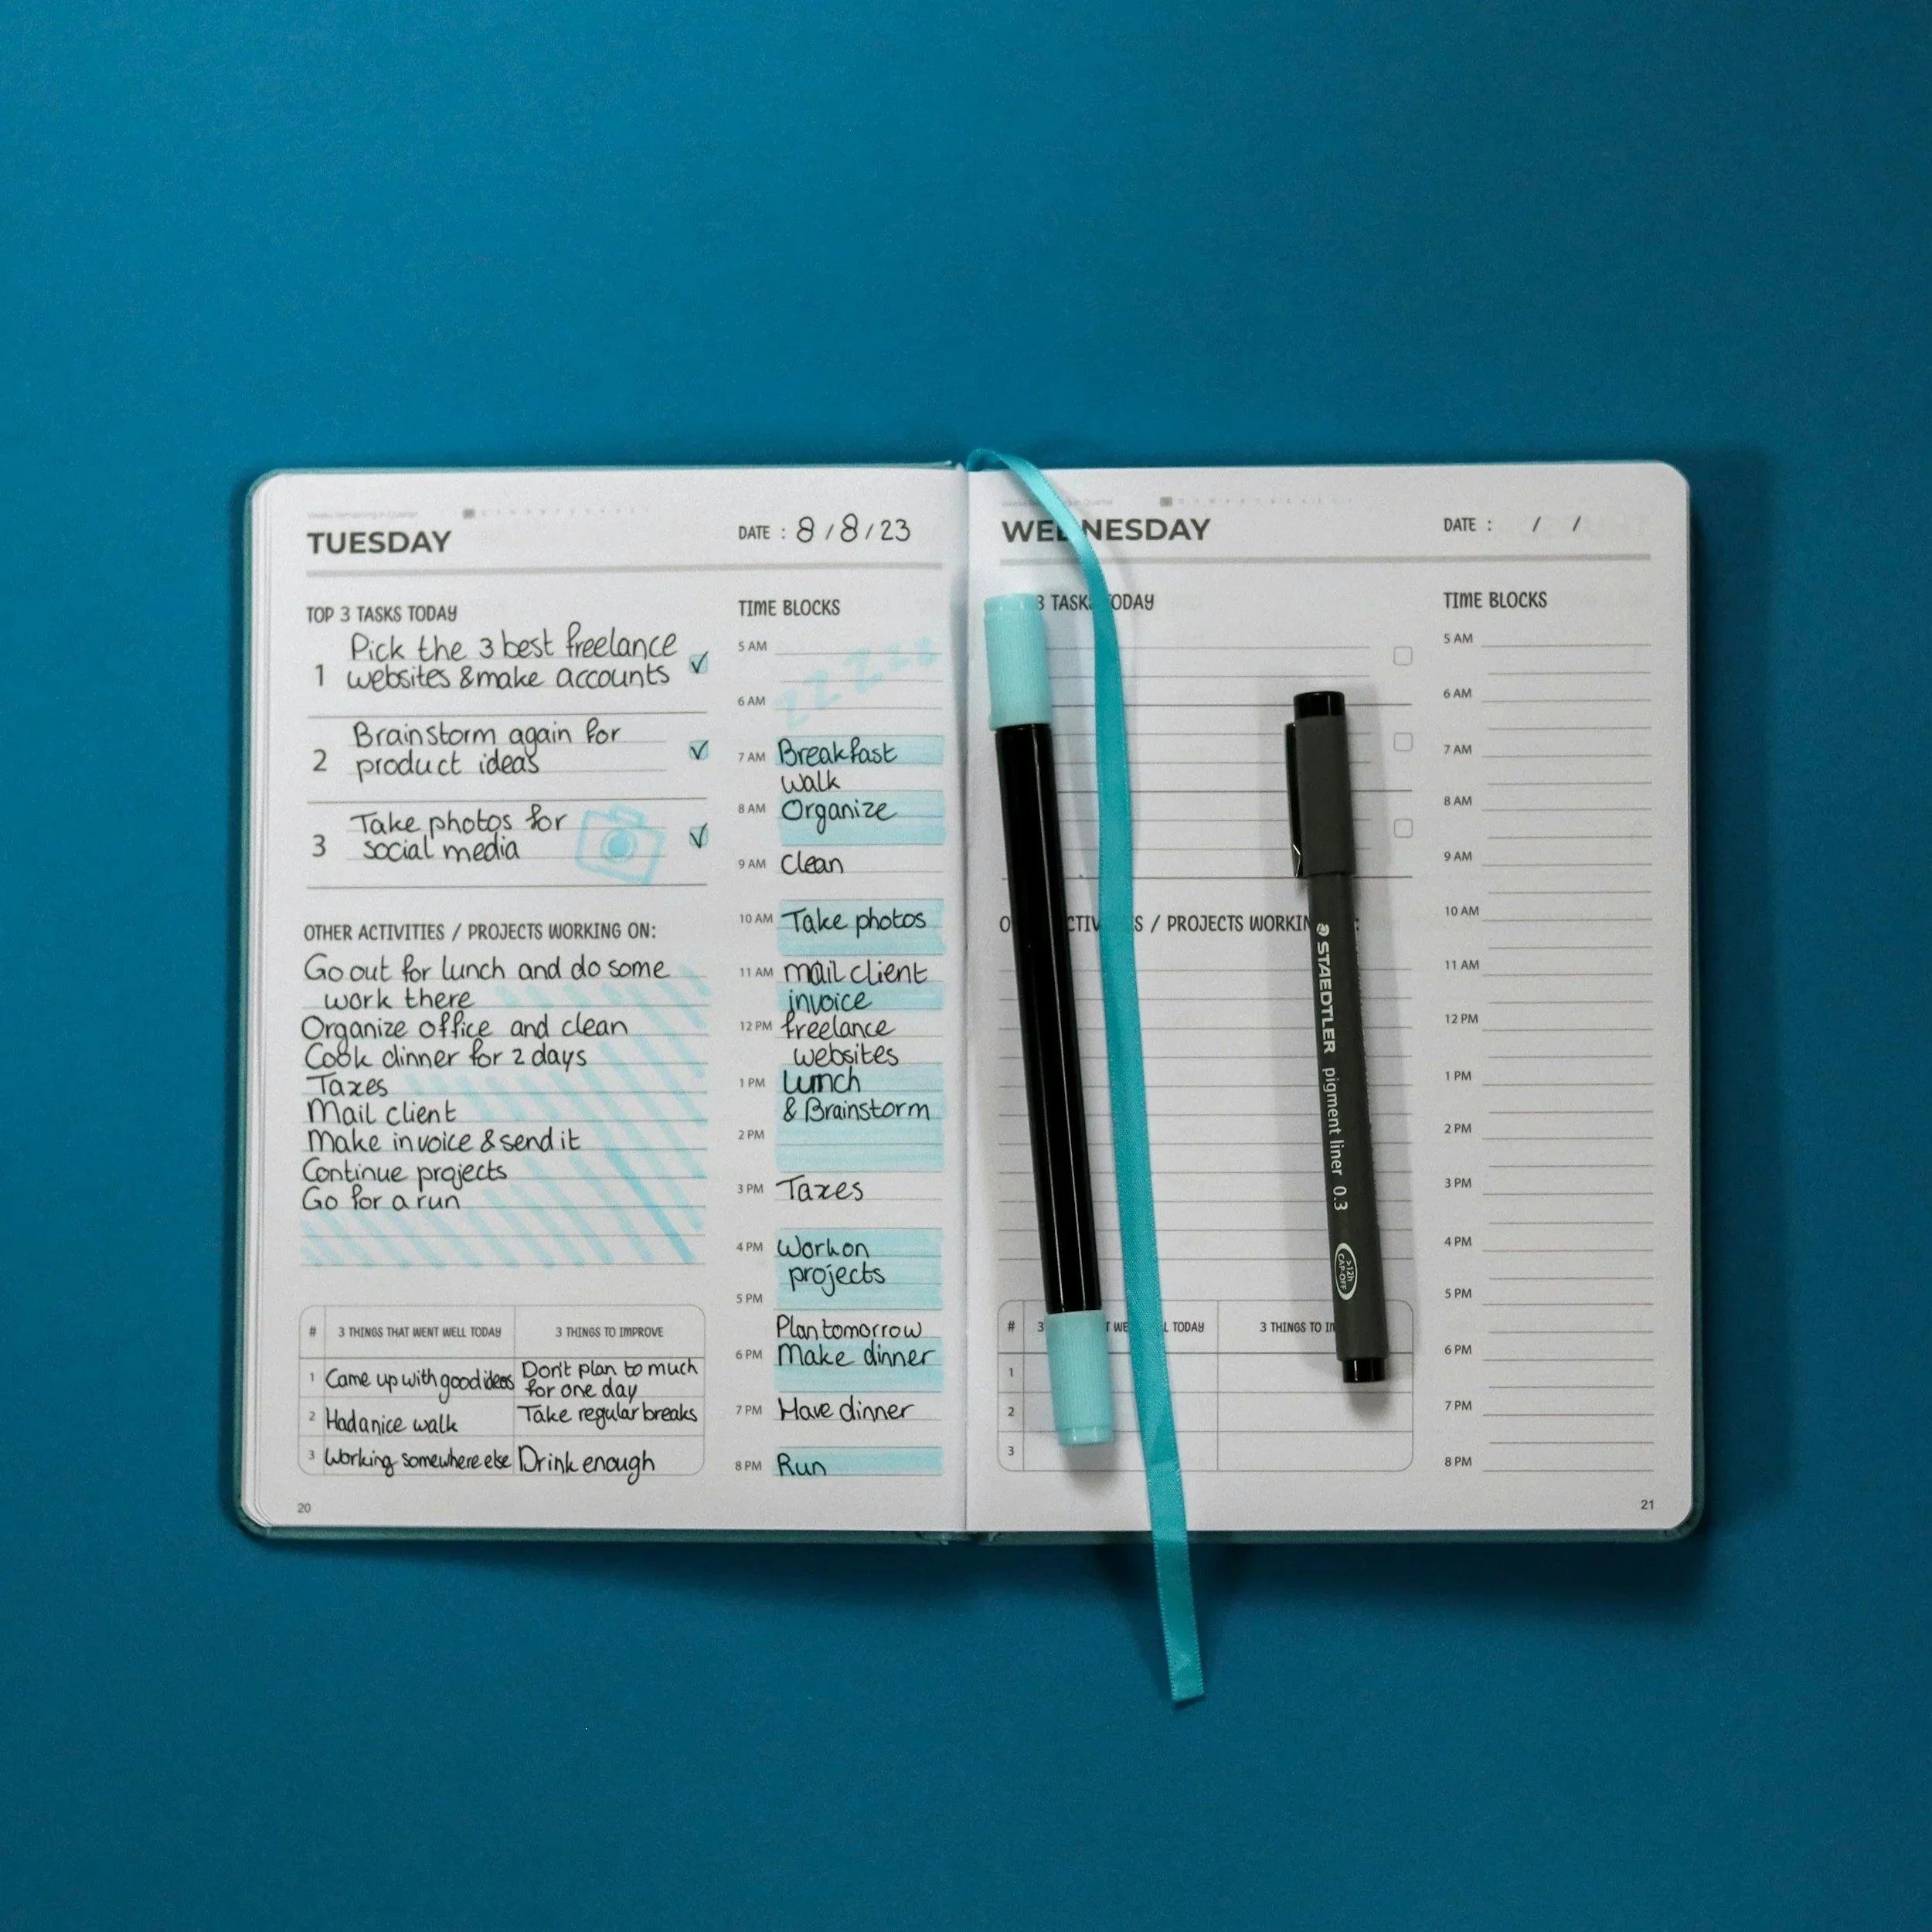 TUESDAY
DATE : 8/8/23
TOP 3 TASKS TODAY
1 Pick the 3 best freelance
websites & make accounts
2 Brainstorm again for
product ideas
3 Take photos for
social media
OTHER ACTIVITIES / PROJECTS WORKING ON:
Go out for lunch and do some
work there
Organize office and clean
Cook dinner for 2 days
Taxes
Mail client
Make invoice & send it
Continue projects
Go for a run
# 3 THINGS THAT WENT WELL TODAY 3 THINGS TO IMPROVE
1 Came up with good ideas Don't plan to much
for one day
2 Had a nice walk Take regular breaks
3 Working somewhere else Drink enough
20
TIME BLOCKS
5 AM
zzzzzz
6 AM
7 AM Breakfast
walk
8 AM Organize
9 AM Clean
10 AM Take photos
11 AM mail client
invoice
12 PM freelance
websites
1 PM Lunch
& Brainstorm
2 PM
3 PM Taxes
4 PM Work on
projects
5 PM
Plan tomorrow
6 PM Make dinner
7 PM Have dinner
8 PM Run
WEDNESDAY
DATE : / /
3 TASKS TODAY
/ PROJECTS WORKIN
# 3 WE L TODAY 3 THINGS TO
1
2
3
TIME BLOCKS
5 AM
6 AM
7 AM
8 AM
9 AM
10 AM
11 AM
12 PM
1 PM
2 PM
3 PM
4 PM
5 PM
6 PM
7 PM
8 PM
21
STAEDTLER pigment liner 0.3
>12h
CAP-OFF